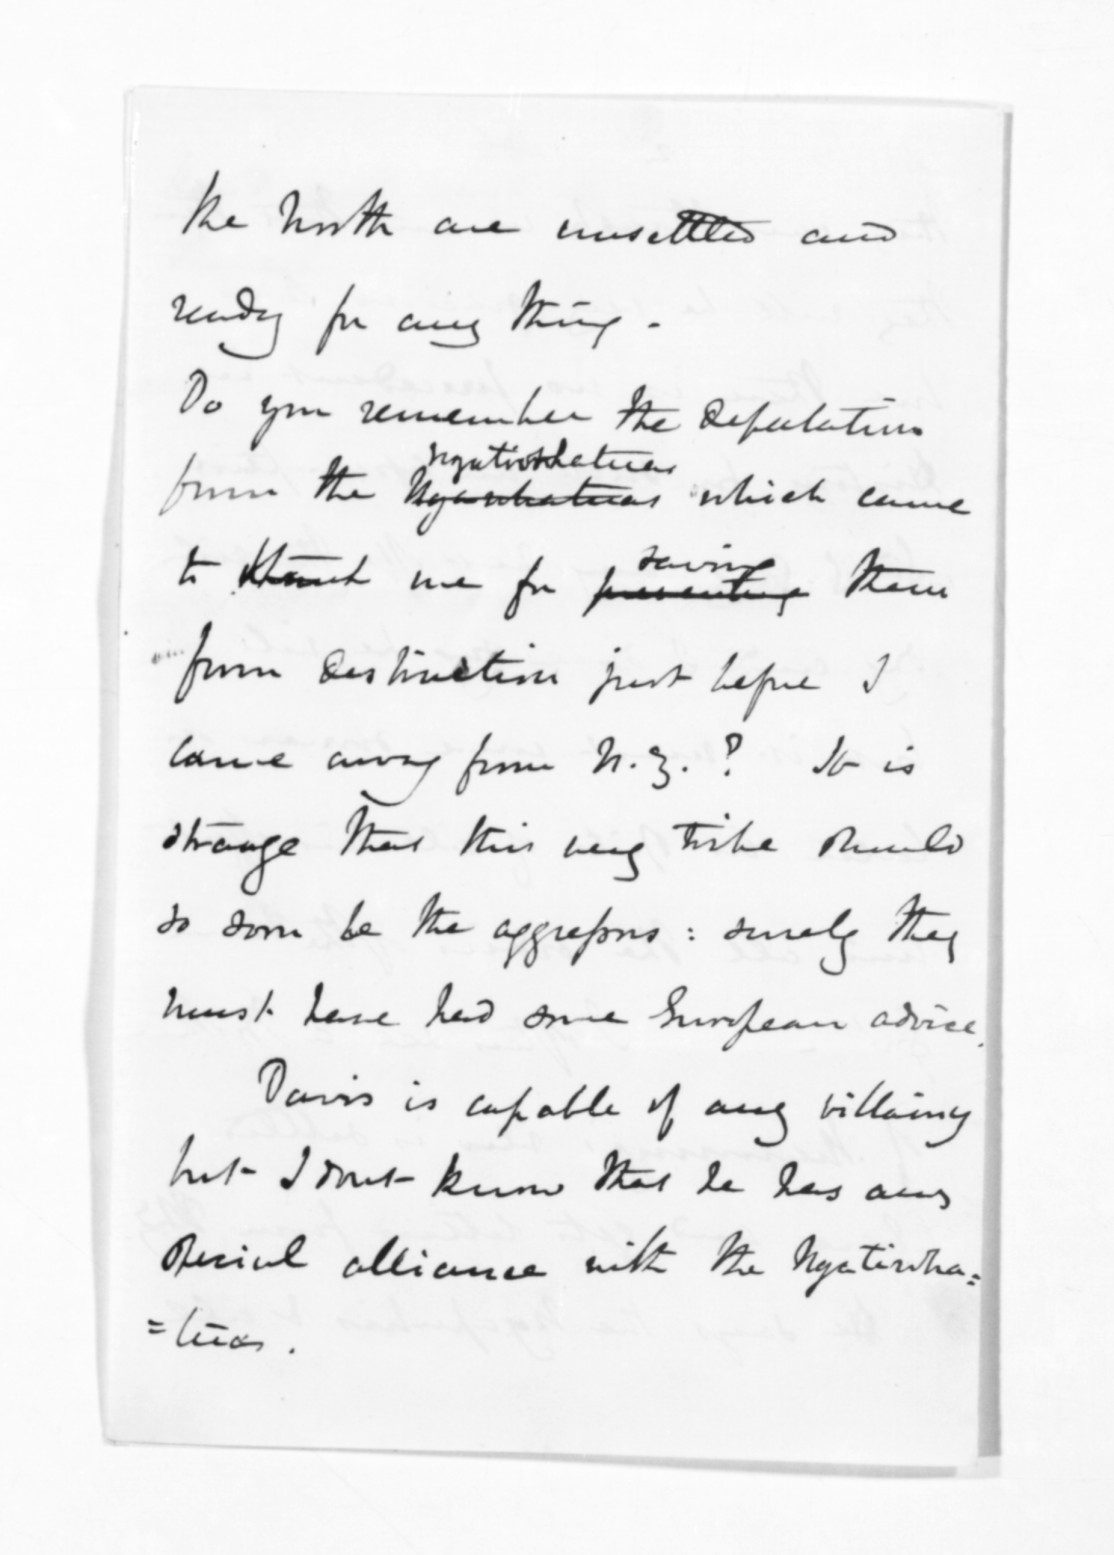 the North are unsettled and
ready for any thing.
Do you remember the deputation
Ngatiwhatuas
from the Ngawhatuas which came
to thank me for preventing them
saving
from destruction just before I
came away from N.Z.? It is
strange that this very tribe should
so soon be the aggressors: surely they
must have had some European advice.
Davis is capable of any villainy
but I dont know that he has any
special alliance with the Ngatiwha=
=tuas.